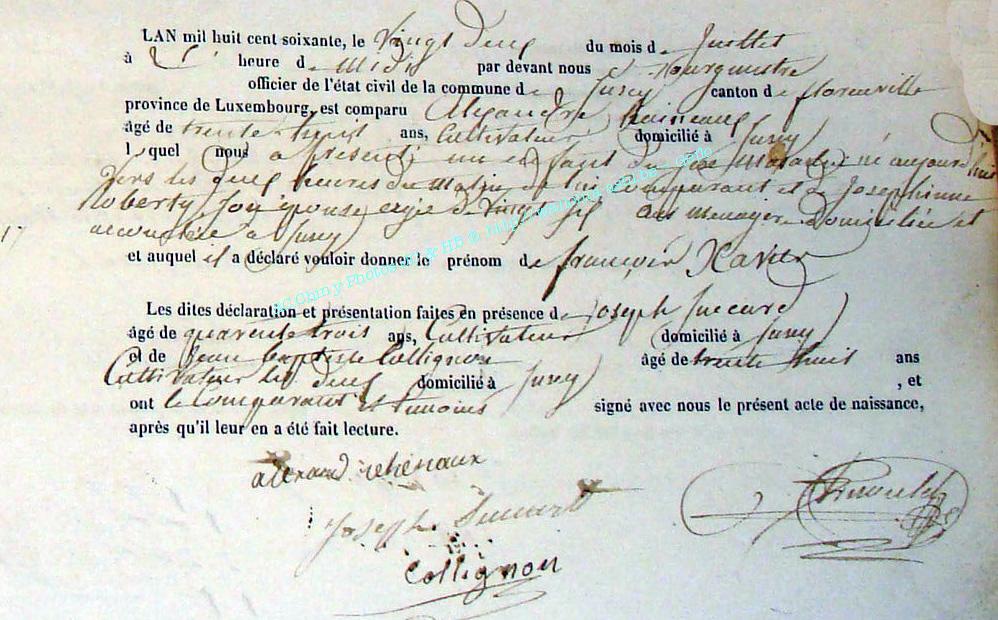 LAN mil huit cent soixante, le Vingt deux du mois de Juillet
à heure de Midi par devant nous Bourgmestre
officier de l'état civil de la commune de Suxy canton de florenville
province de Luxembourg, est comparu Alexandre hainaux
âgé de trente huit ans, Cultivateur domicilié à Suxy
l quel nous a présenté un enfant du sexe Masculin né aujourd'hui
Vers les deux heures du Matin de lui comparant et de Joséphinne
Roberty son épouse agée de Vingt six ans Menagere Domiciliée et
17 accouchée à Suxy
et auquel il a déclaré vouloir donner le prénom de françois Xavier
Les dites déclaration et présentation faites en présence de Joseph
âgé de quarente trois ans, Cultivateur domicilié à Suxy
et de Jean baptiste Collignon âgé de trente huit ans
Cultivateur les deux domicilié à Suxy , et
ont le Comparant et temoins signé avec nous le présent acte de naissance,
après qu'il leur en a été fait lecture.
Joseph
Collignon